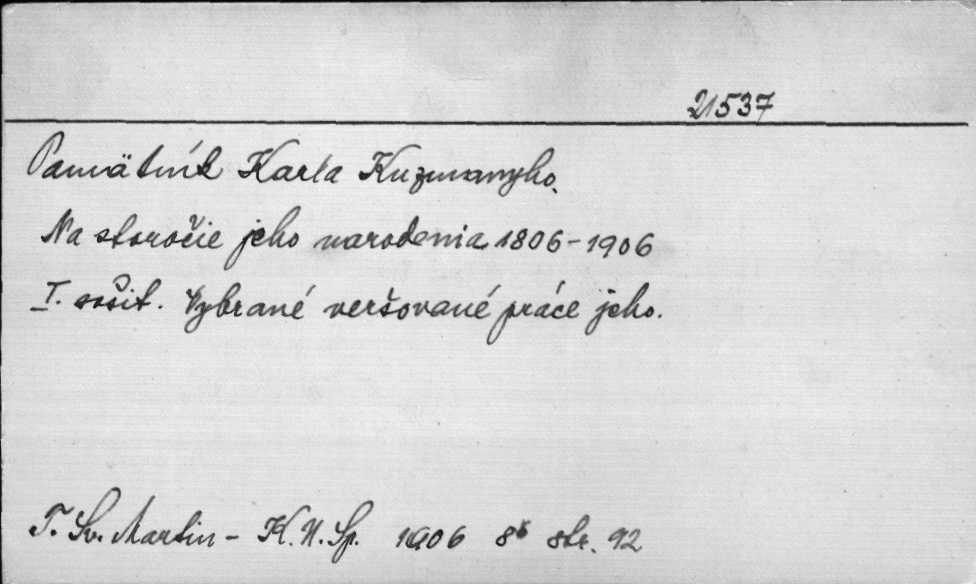 21537
Pamätník Karla Kuzmanyho.
Na storočie jeho narodenia 1806-1906
I. sošit. Vybrané veršované práce jeho.
T. Sv. Martin - K. N. Sp. 1906 8° str. 92